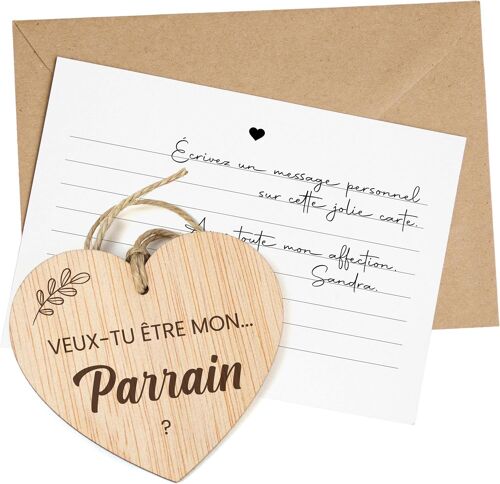 Écrivez un message personnel
sur cette jolie carte.
toute mon affection.
Sandra.
VEUX-TU ÊTRE MON...
Parrain
?